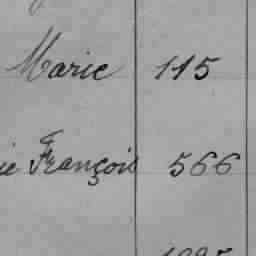 Marie 115
François 566